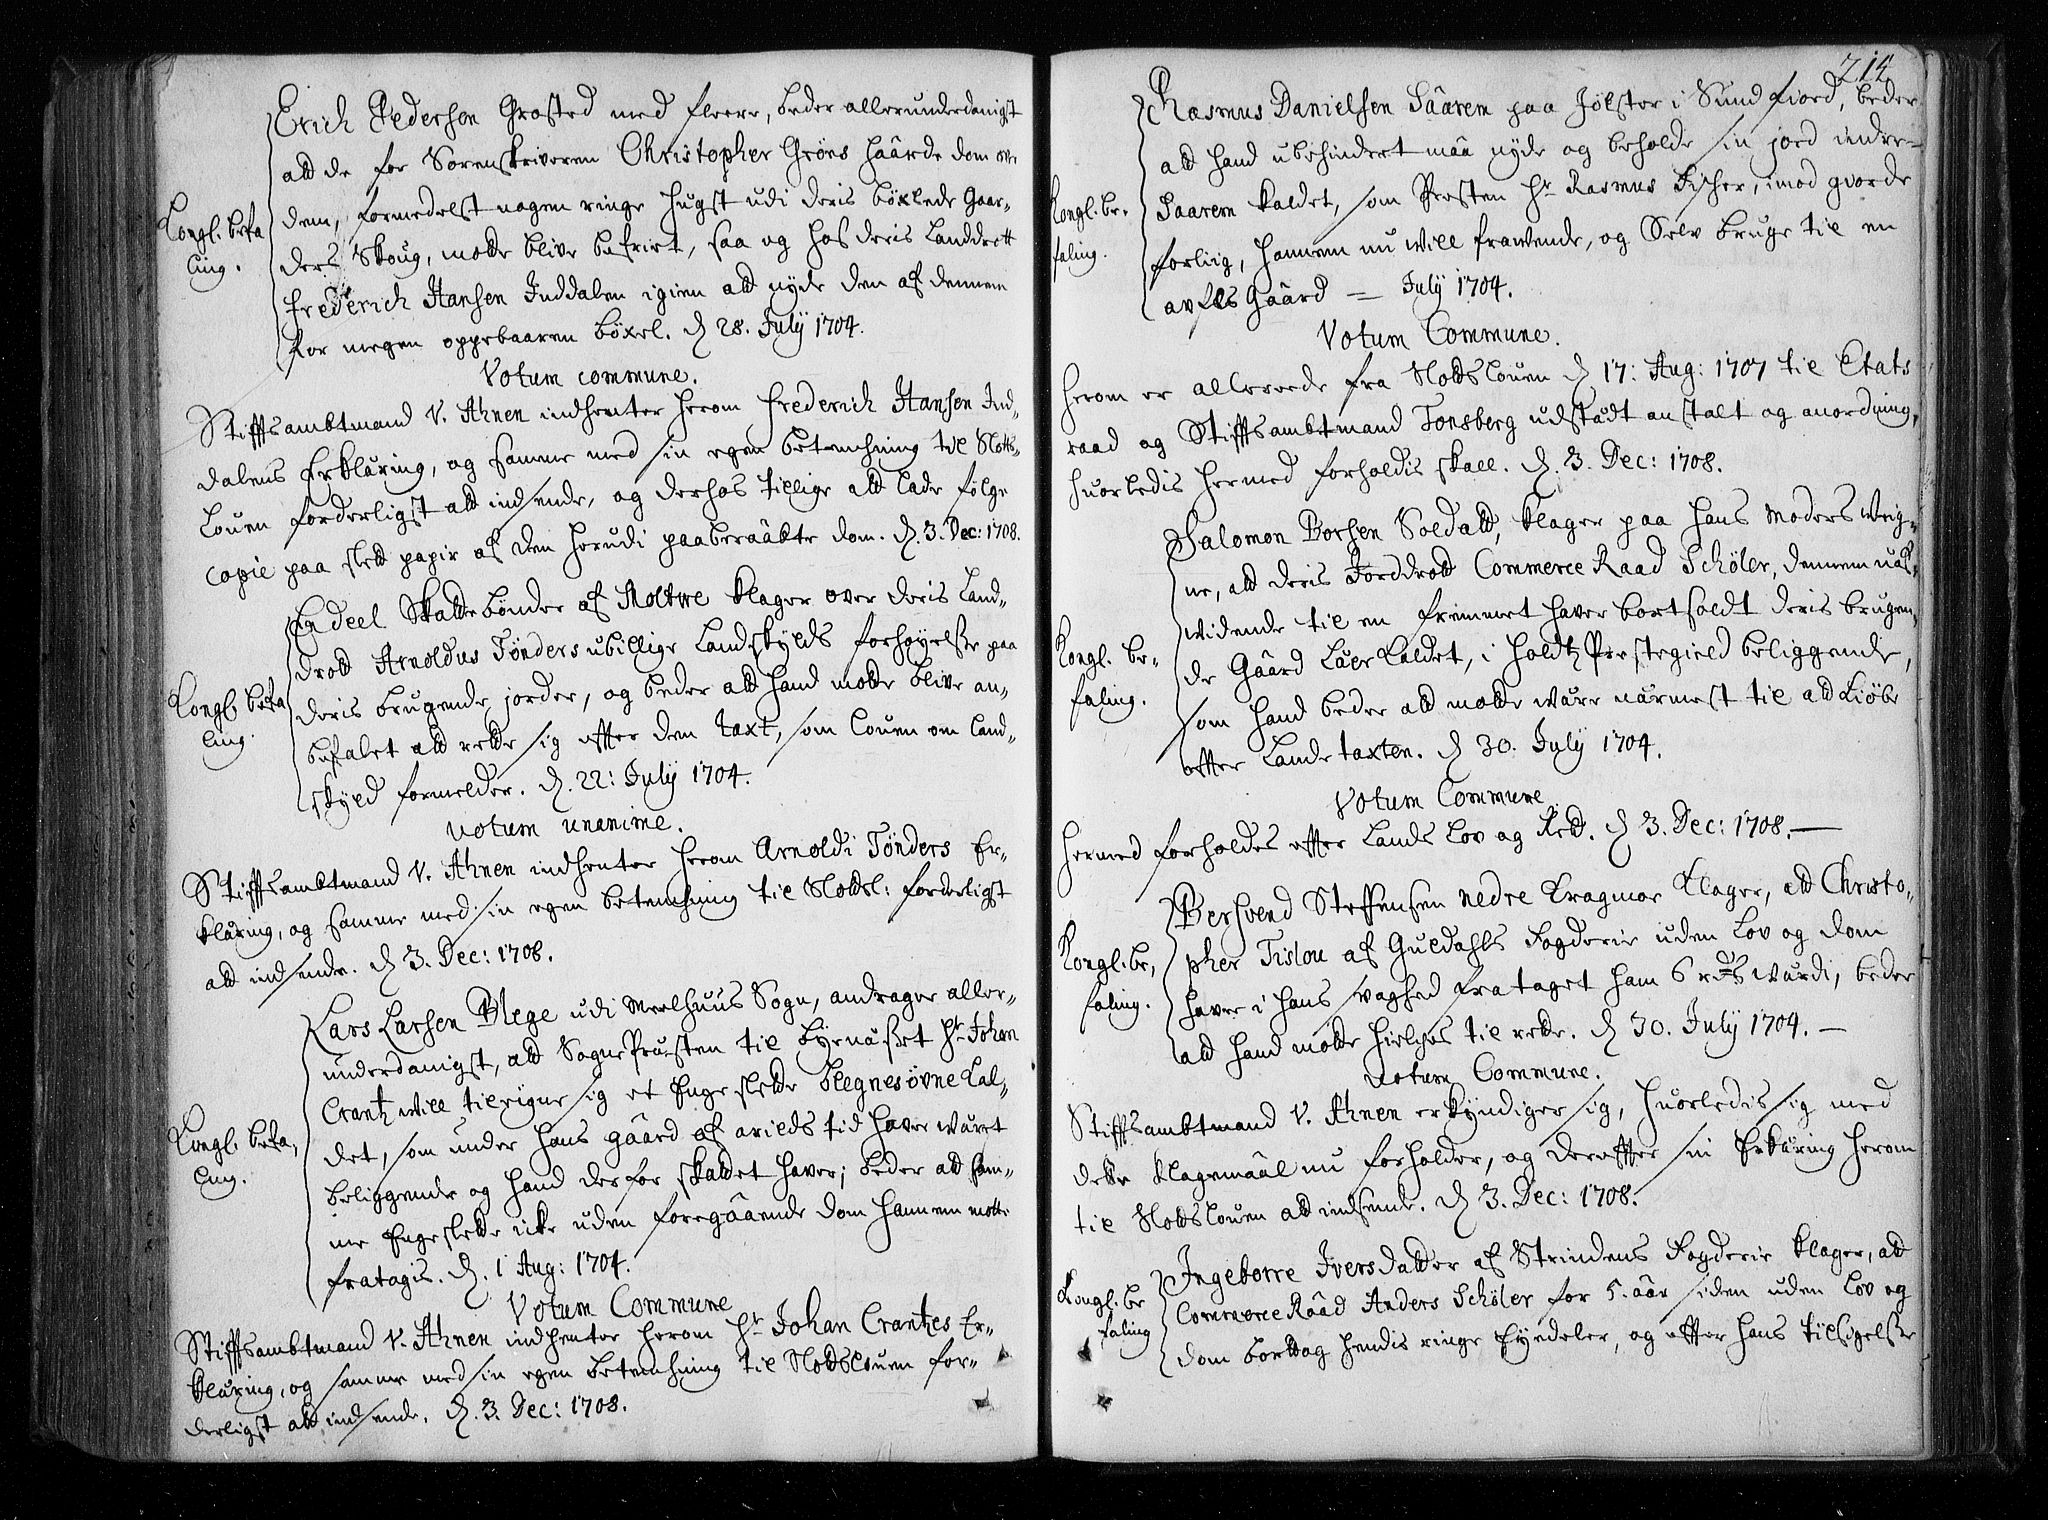 Erich Pedersen Grosted med fleere, beder allerunderdanigst
att de for Sorenskriveren Christopher Gröns haarde dom over
dem, formedelst nogen ringe hugst udi deris böxlede Gaar-
ders Skoug, motte blive befriet, saa og hos deris Landdrott
Frederich Hansen Inddalen igien att nyde den af dennem
for megen oppebaaren böxel. D. 28. July 1704.
Kongl. befa
ling.
Votum commune.
Stiftsambtmand v. Ahnen indhenter herom Frederich Hansen Ind-
dalens Erklæring, og samme med sin egen betenchning til Slotts-
Louen forderligst att indsende, og derhos tillige att lade følge
copie paa slett papir af den herudi paaberaabte dom. D. 3. Dec: 1708.
En deel Skattebønder af Moltwe klager over deris Land-
drott Arnoldus Tønders ubillige Landskylds forhøyelsse paa
deris brugende jorder, og beder att hand motte blive an-
befalet att rette sig effter den taxt, som Louen om Land-
skyld formelder. D. 22: July 1704.
Kongl. befa
ling.
votum unanime.
Stiftsambtmand v. Ahnen indhenter herom Arnoldi Tønders Er-
klæring, og samme med sin egen betenchning til Slottsl: forderligst
att indsende. D. 3. Dec: 1708.
Lars Larsen Blege udi Meelhuus Sogn, andrager aller-
underdanigst, att SognePresten til Byenæsset Hr. Johan
Crantz will tileigne sig et Engeslette Blegnesøyne kal-
det, som under hans gaard af arilds tid haver wæret
beliggende og hand derfor skattet haver; beder att sam-
me Engeslette icke uden foregaaende dom hannem motte
fratagis. D. 1 Aug: 1704.
Kongl. befa,
ling.
Votum Commune
Stiftsambtmand v. Ahnen indhenter herom Hr. Johan Crantzes Er-
klæring, og samme med sin egen betenchning til Slottslouen for-
derligst att indsende. D. 3. Dec: 1708.
214
Rasmus Danielsen Saarem paa Jölster i Sundfiord, beder
att hand ubehindret maa nyde og beholde sin jord indre-
Saarem kaldet, som Prosten Hr. Rasmus Fischer, imod giorde
forliig, hannem nu will frawende, og Selv bruge til en
avlsGaard — July 1704.
Kongl. be-
faling.
Votum Commune.
Herom er allereede fra Slottslouen D. 17: Aug: 1707 til Etats
raad og Stiftsambtmand Tonsberg udstædt anstalt og anordning,
huorledis hermed forholdis skall. D. 3. Dec: 1708.
Salomon Borsen Soldatt, klager paa hans moders veig-
ne, att deris Jorddrott CommerceRaad Schøler, dennem uaf-
vidende til en fremmet haver bortsoldt deris brugen-
de Gaard Laer kaldet, i Holdtz Prestegield beliggende,
som hand beder att motte være nærmest til att kiöbe
effter Landetaxten. D 30. July 1704.
Kongl. be-
faling.
Votum Commune.
Hermed forholdes effter Lands Lov og Rett. D 3. Dec: 1708.—
Bersvend Steffensen nedre Kragmoe klager, att Christo-
pher Tislou af Guldahls Fogderie uden Lov og dom
haver i hans svaghed frataget ham 6 rds wærdi, beder
att hand motte hielpes til rette. D 30. July 1704.—
Kongl. be,
faling.
Votum Commune.
Stiftsambtmand v. Ahnen erkyndiger sig, huorledis sig med
dette klagemaal nu forholder, og dereffter sin Erklæring herom
til Slottslouen att indsende. D 3. Dec: 1708.
Ingeborre Iversdatter af Strindens Fogderie klager, att
CommerceRaad Anders Schøler for 5. aar siden uden Lov og
dom borttog hendis ringe Eyedeler, og effter hans tilsigelsse
Kongl. be
faling